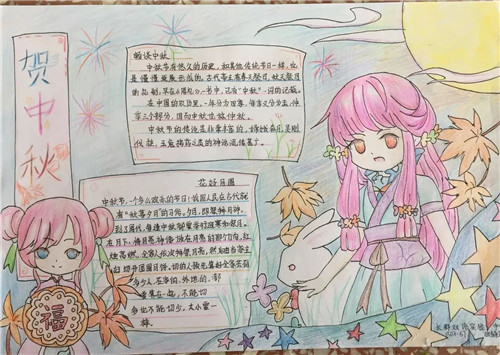 贺中秋
畅谈中秋
中秋节有悠久的历史,和其他传统节日一样,也
是慢慢发展形成的,古代帝王有春天祭日,秋天祭月
的礼制,早在《周礼》一书中,已有"中秋"一词的记载。
在中国的农历里,一年分为四季,每季又分为孟、仲、
季三个部分,因而中秋也称仲秋。
中秋节的传说是非常丰富的,嫦娥奔月,吴刚
伐桂,玉兔捣药之类的神话流传甚广。
花好月圆
中秋节,一个多么欢乐的节日!我国人民在古代就
有"秋暮夕月"的习俗。夕月,即祭拜月神。
到了周代,每逢中秋夜都要举行迎寒和祭月。
在月下,将月亮神像放在月亮的那个方向,红
烛高燃,全家人依次拜祭月亮,然后由当家主
妇切开团圆月饼。切的人预先算好全家共有
多少人,在家的,外地的,都
要算在一起,不能切
多也不能切少,大小要一
样。
福